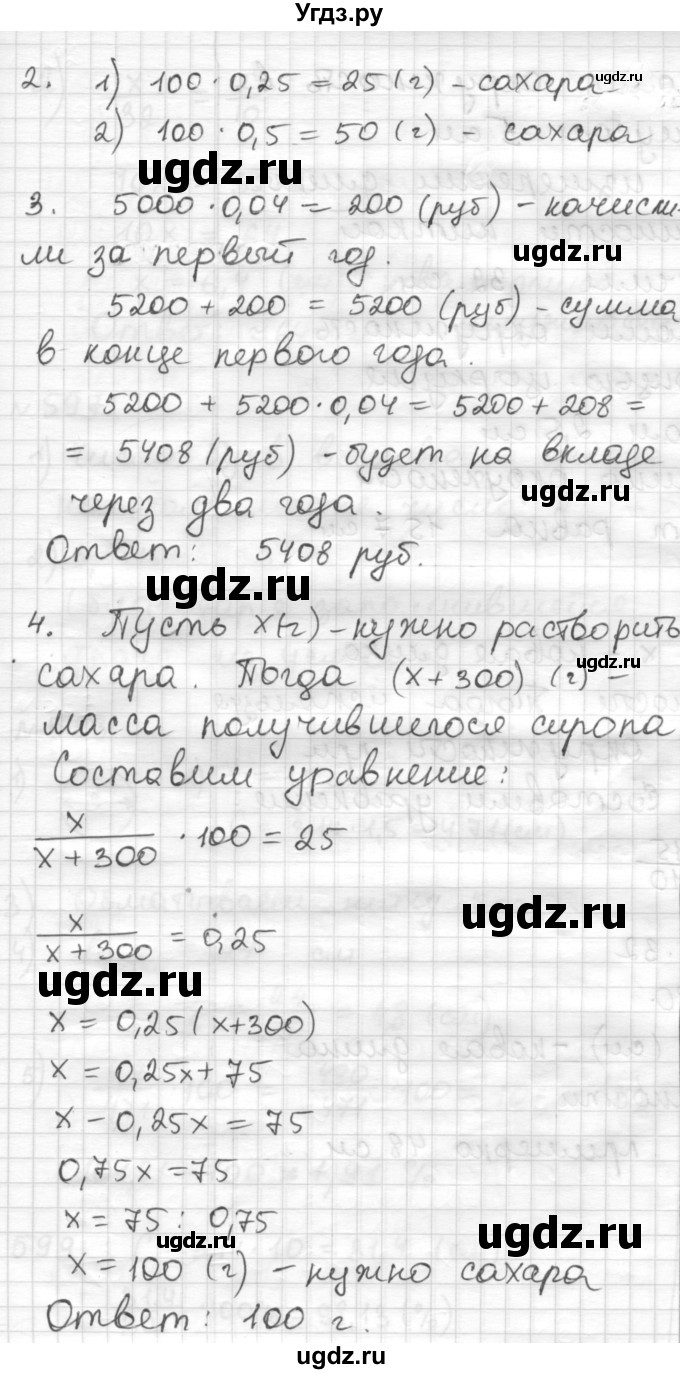 Угдз.ру
2. 1) 100 · 0,25 = 25 (г) - сахара
ugdz.ru
2) 100 · 0,5 = 50 (г) - сахара
ugdz.ru
3. 5000 · 0,04 = 200 (руб) - начисли-
ли за первый год.
ugdz.ru
5200 + 200 = 5200 (руб) - сумма
в конце первого года.
5200 + 5200 · 0,04 = 5200 + 208 =
= 5408 (руб) - будет на вкладе
ugdz.ru
через два года.
Ответ: 5408 руб.
ugdz.ru
4. Пусть x (г) - нужно растворить
ugdz.ru
сахара. Тогда (x + 300) (г) -
масса получившегося сиропа
Составим уравнение:
x / (x + 300) · 100 = 25
ugdz.ru
x / (x + 300) = 0,25
ugdz.ru
x = 0,25 (x + 300)
x = 0,25x + 75
x - 0,25x = 75
0,75x = 75
x = 75 : 0,75
ugdz.ru
ugdz.ru
x = 100 (г) - нужно сахара
Ответ: 100 г.
ugdz.ru